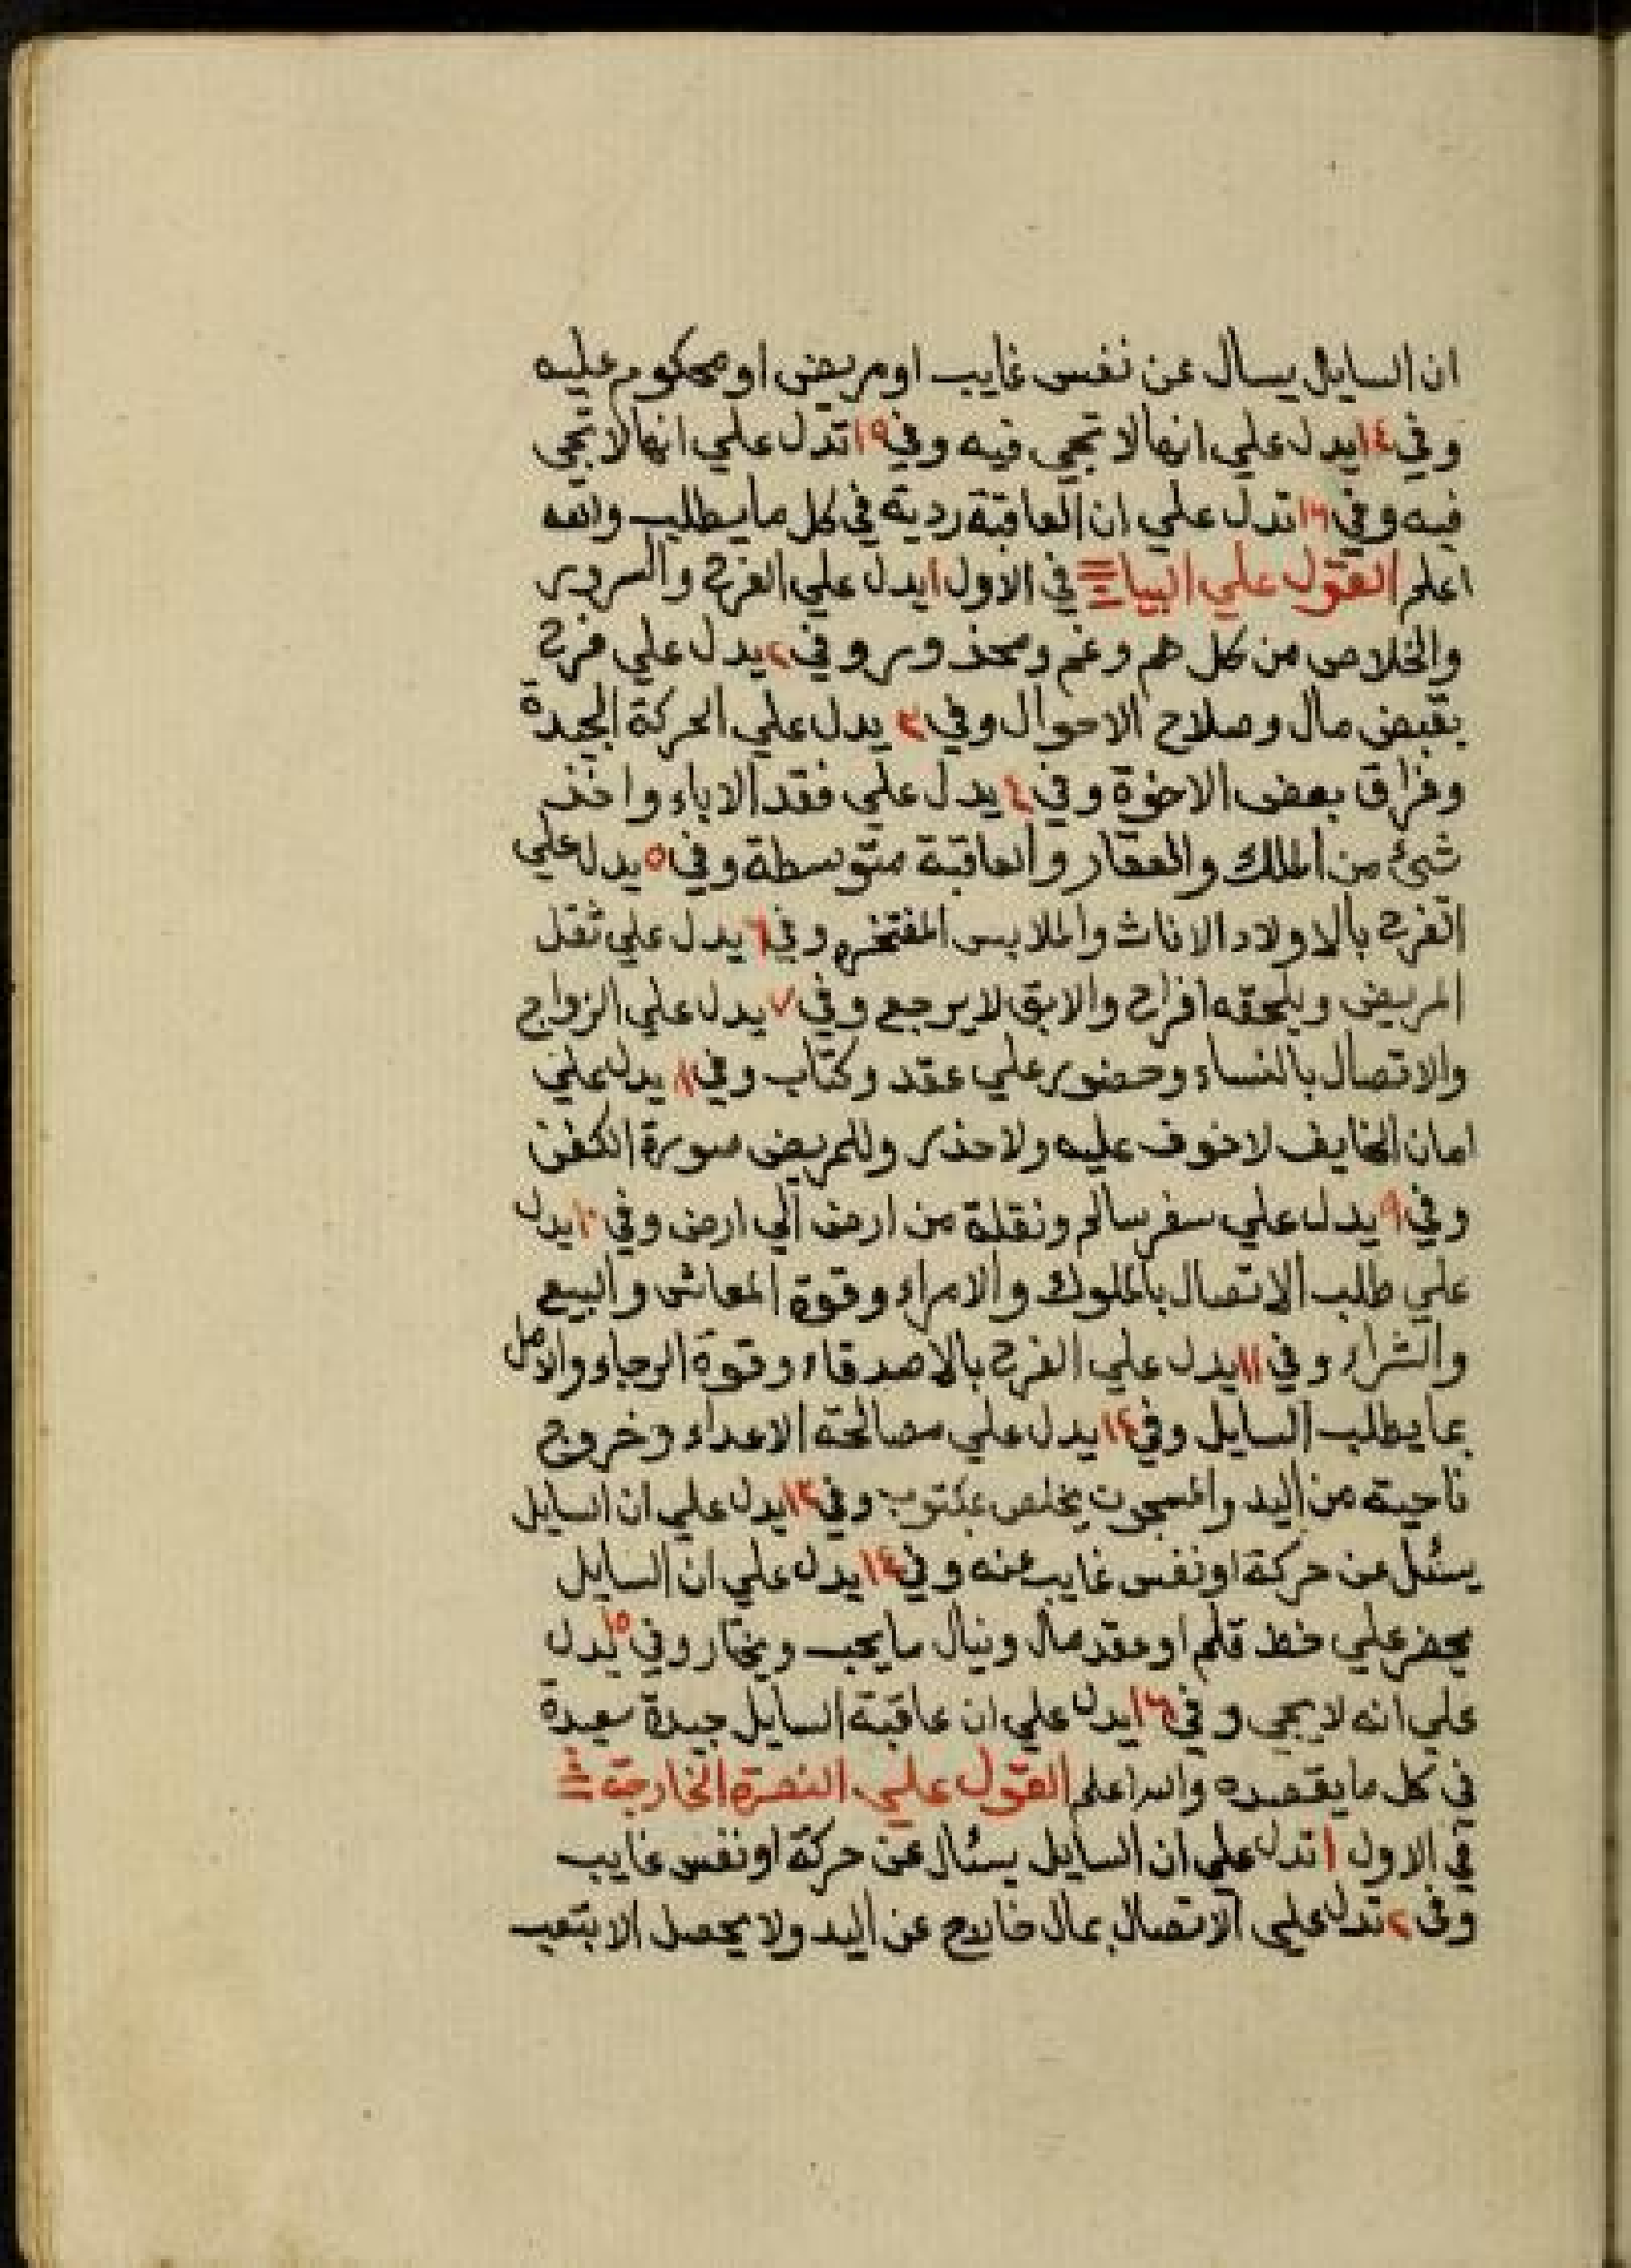 ان السايل يسال عن نفس غايب او مريض او محكوم عليه
وفي ١٤ يدل علي انها لا تجي فيه وفي ١٥ تدل علي انها لا تجي
فيه وفي ١٦ تدل علي ان العاقبة ردية في كل ما يطلب والله
اعلم القول علي البياض في الاول ١ يدل علي الفرح والسرور
والخلاص من كل هم وغم ومحذور وفي ٢ يدل علي فرح
بقبض مال وصلاح الاحوال وفي ٣ يدل علي الحركة الجيدة
وفراق بعض الاخوة وفي ٤ يدل علي فقد الاباء واخذ
شئ من الملك والعقار والعاقبة متوسطة وفي ٥ يدل علي
الفرح بالاولاد الاناث والملابس المفتخره وفي ٦ يدل علي ثقل
المريض ويلحقه افراح والابق لا يرجع وفي ٧ يدل علي الزواج
والاتصال بالنساء وحضور علي عقد وكتاب وفي ٨ يدل علي
امان الخايف لا خوف عليه ولا حذر وللمريض سورة الكفن
وفي ٩ يدل علي سفر سالم ونقلة من ارض الي ارض وفي ١٠ يدل
علي طلب الاتصال بالملوك والامراء وقوة المعاش والبيع
والشراء وفي ١١ يدل علي الفرح بالاصدقاء وقوة الرجاء والامل
بما يطلب السايل وفي ١٢ يدل علي مصالحة الاعداء وخروج
ناحيته من اليد والمسجون يخلص وفي ١٣ يدل علي ان السايل
يسئل عن حركة او نفس غايب عنه وفي ١٤ يدل علي ان السايل
يحضر علي خط قلم او عقد مال وينال ما يحب ويختار وفي ١٥ يدل
علي انه لا يجي وفي ١٦ يدل علي ان عاقبة السايل جيدة سعيدة
في كل ما يقصده والله اعلم القول علي النصرة الخارجة
في الاول ١ تدل علي ان السايل يسئال عن حركة او نفس غايب
وفي ٢ تدل علي الاتصال بمال خارج عن اليد ولا يحصل الا بتعب